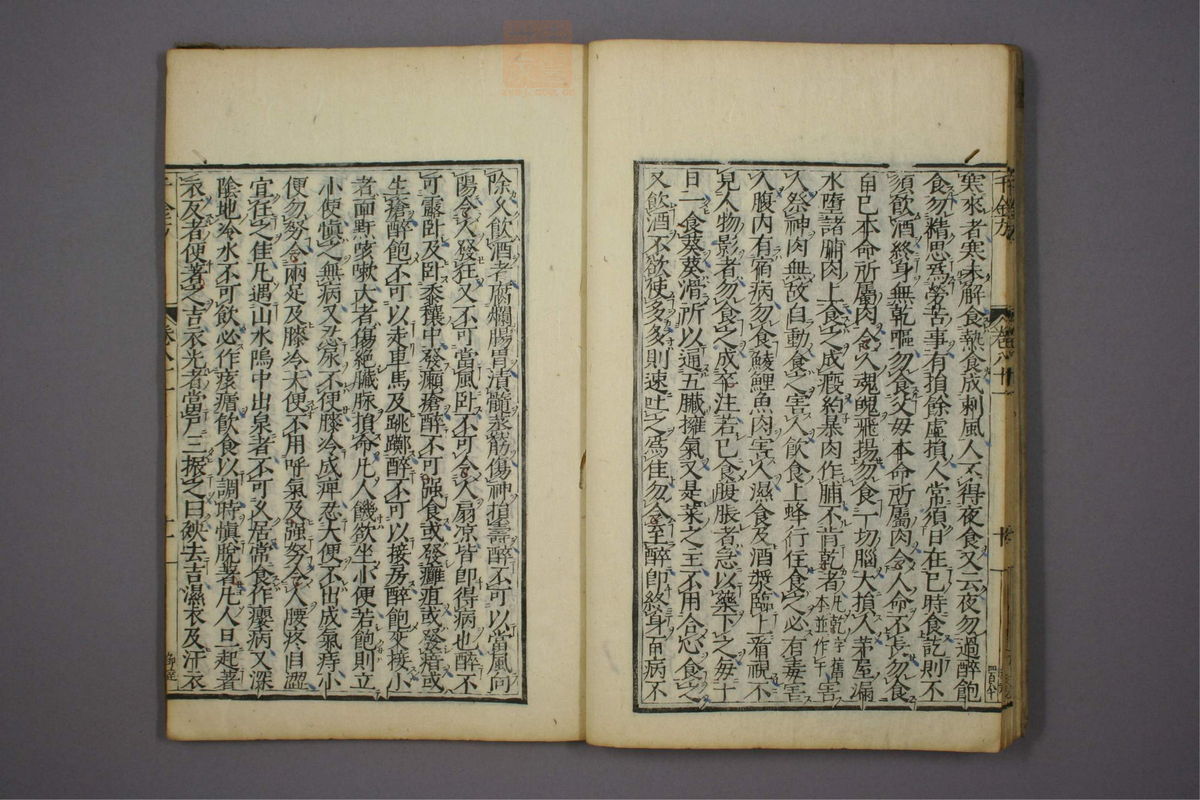 寒來者寒未解食熱食成刺風人不得夜食又云夜勿過醉飽
食勿精思爲勞苦事有損餘虛損人常須日在巳時食訖則不
須飲酒終身無乾嘔勿食父母本命所屬肉令人命不長勿食
自己本命所屬肉令人魂魄飛揚勿食一切腦大損人茅屋漏
水墮諸脯肉上食之成瘕約暴肉作脯不肯乾者凡乾字舊本並作干害
人祭神肉無故自動食之害人飲食上蜂行住食之必有毒害
人腹內有宿病勿食鯪鯉魚肉害人濕食及酒漿臨上看視不
見人物影者勿食之成卒注若已食腹脹者急以藥下之每十
日一食葵葵滑所以通五臟擁氣又是菜之主不用合心食之
又飲酒不欲使多多則速吐之爲佳勿令至醉即終身百病不
千金方 卷八十一 十
除久飲酒者腐爛腸胃漬髓蒸筋傷神損壽醉不可以當風向
陽令人發狂又不可當風卧不可令人扇凉皆即得病也醉不
可露卧及卧黍穰中發癩瘡醉不可强食或發癰疽或發瘖或
生瘡醉飽不可以走車馬及跳躑醉不可以接房醉飽交接小
者面䵟咳嗽大者傷絶臟脉損命凡人饑欲坐小便若飽則立
小便慎之無病又忍尿不便膝冷成痺忍大便不出成氣痔小
便勿努令兩足及膝冷大便不用呼氣及强努令人腰疼目澀
宜任之佳凡遇山水塢中出泉者不可久居常食作癭病又深
陰地冷水不可飲必作痎瘧飲食以調時慎脫著凡人旦起著
衣及者便著之吉衣光者當戶三振之曰殃去吉濕衣及汗衣
千金方 卷八十一 十一